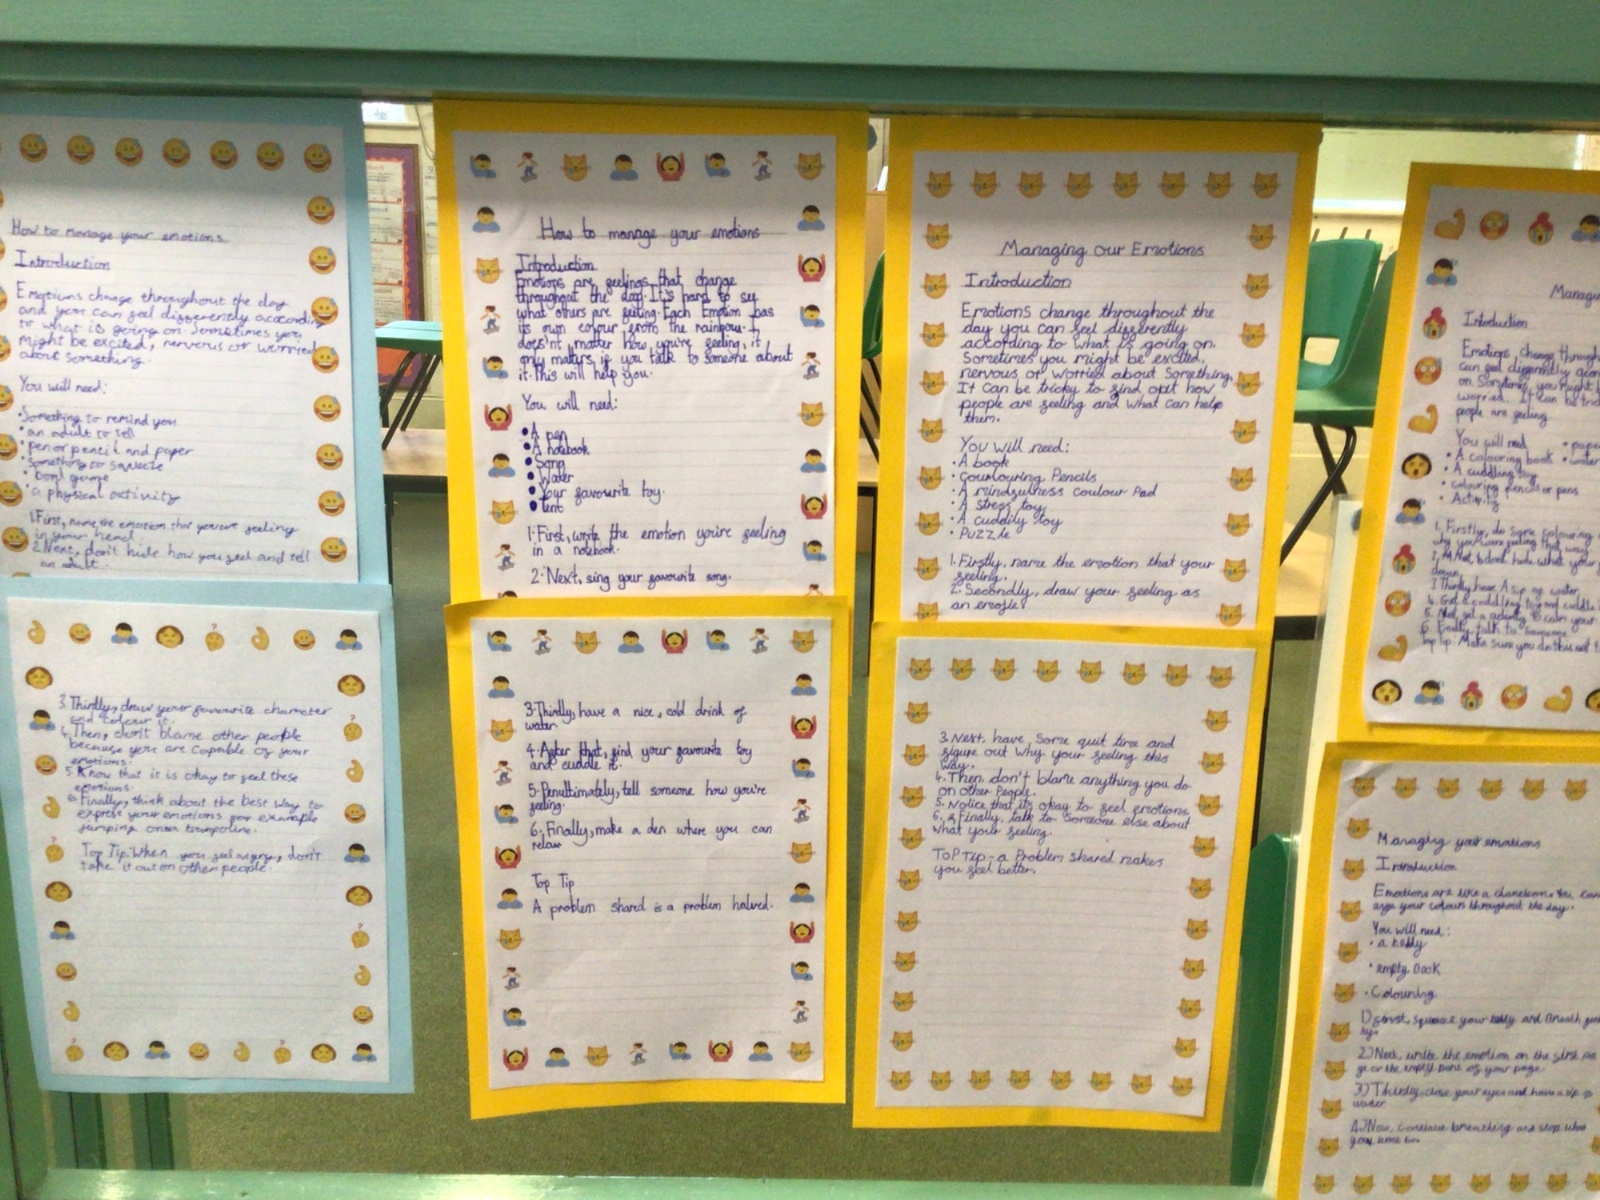 How to manage your emotions
Introduction
Emotions change throughout the day
and you can feel differently according
to what is going on. Sometimes you
might be excited, nerverus or worried
about something.
You will need:
·Something to remind you
• an adult to tell
• pen or pencil and paper
• something to squeeze
• bord game
• a physical activity
1.First, name the emotion that you're feeling
in your head.
2.Next, don't hide how you feel and tell
an adult.
3.Thirdly, draw your favourite character
and colour it.
4.Then, don't blame other people
because you are capable of your
emotions.
5.Know that it is okay to feel these
emotions.
6.Finally, think about the best way to
express your emotions for example
jumping on a trampoline.
Top Tip:When you feel angry, don't
take it out on other people.
How to manage your emotions
Introduction
Emotions are feelings that change
throughout the day. It's hard to see
what others are feeling. Each Emotion has
its own colour from the rainbow. It
does'nt matter how you're feeling, it
only matters if you talk to someone about
it. This will help you.
You will need:
• A pen
• A notebook
• Song
• Water
• Your favourite toy.
• Tent
1. First, write the emotion you're feeling
in a notebook.
2. Next, sing your favourite song.
3. Thirdly, have a nice, cold drink of
water.
4. After that, find your favourite toy
and cuddle it.
5. Penultimately, tell someone how you're
feeling.
6. Finally, make a den where you can
relax
Top Tip
A problem shared is a problem halved.
Managing our Emotions
Introduction
Emotions change throughout the
day you can feel differently
according to what is going on.
Sometimes you might be excited,
nervous or worried about Something.
It can be tricky to find out how
people are feeling and what can help
them.
You will need:
• A book
• Coulouring Pencils
• A mindfulness coulour Pad
• A stress toy
• A cuddily toy
• Puzzle
1. Firstly, name the emotion that your
feeling.
2. Secondly, draw your feeling as
an emojie
3. Next, have some quit time and
figure out why your feeling this
way.
4. Then don't blame anything you do
on other People.
5. Notice that its okay to feel emotions
6. Finally, talk to Someone else about
what your feeling.
ToP Tip - a Problem shared makes
you feel better.
Managing
Introduction
Emotions change through
can feel differently
on Sometimes, you might
worried. It can be
people are feeling.
You will need
• A colouring book
• A cuddling toy
• colouring pencils or pens
• Activity
1. Firstly, do some colouring
why you're feeling that way.
2. what your
down.
3. Thirdly have A sip of water.
4. Get a cuddling toy and cuddle
5. Next, get a activity to calm your
6. Finally, talk to someone
top tip: Make sure you do this
Managing your emotions
Introduction
Emotions are like a chameleon. You can
ange your colours throughout the day.
You will need:
• a teddy
• empty book
• Colouring
1) first, squeeze your teddy and Breath
2.) Next, write the emotion on the first pa
ge or the empty page of your page
3) Thirdly, close your eyes and have a sip of
water
4.) Now, continue breathing and stop when